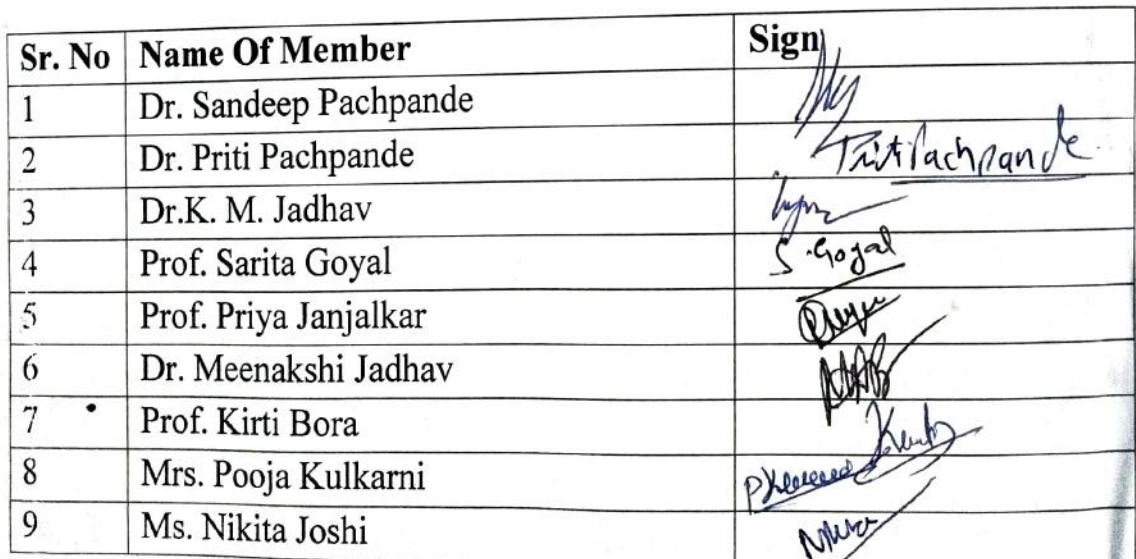 Sr. No Name Of Member Sign
1 Dr. Sandeep Pachpande
2 Dr. Priti Pachpande Priti Pachpande
3 Dr.K. M. Jadhav
4 Prof. Sarita Goyal S. Goyal
5 Prof. Priya Janjalkar
6 Dr. Meenakshi Jadhav
7 Prof. Kirti Bora
8 Mrs. Pooja Kulkarni
9 Ms. Nikita Joshi